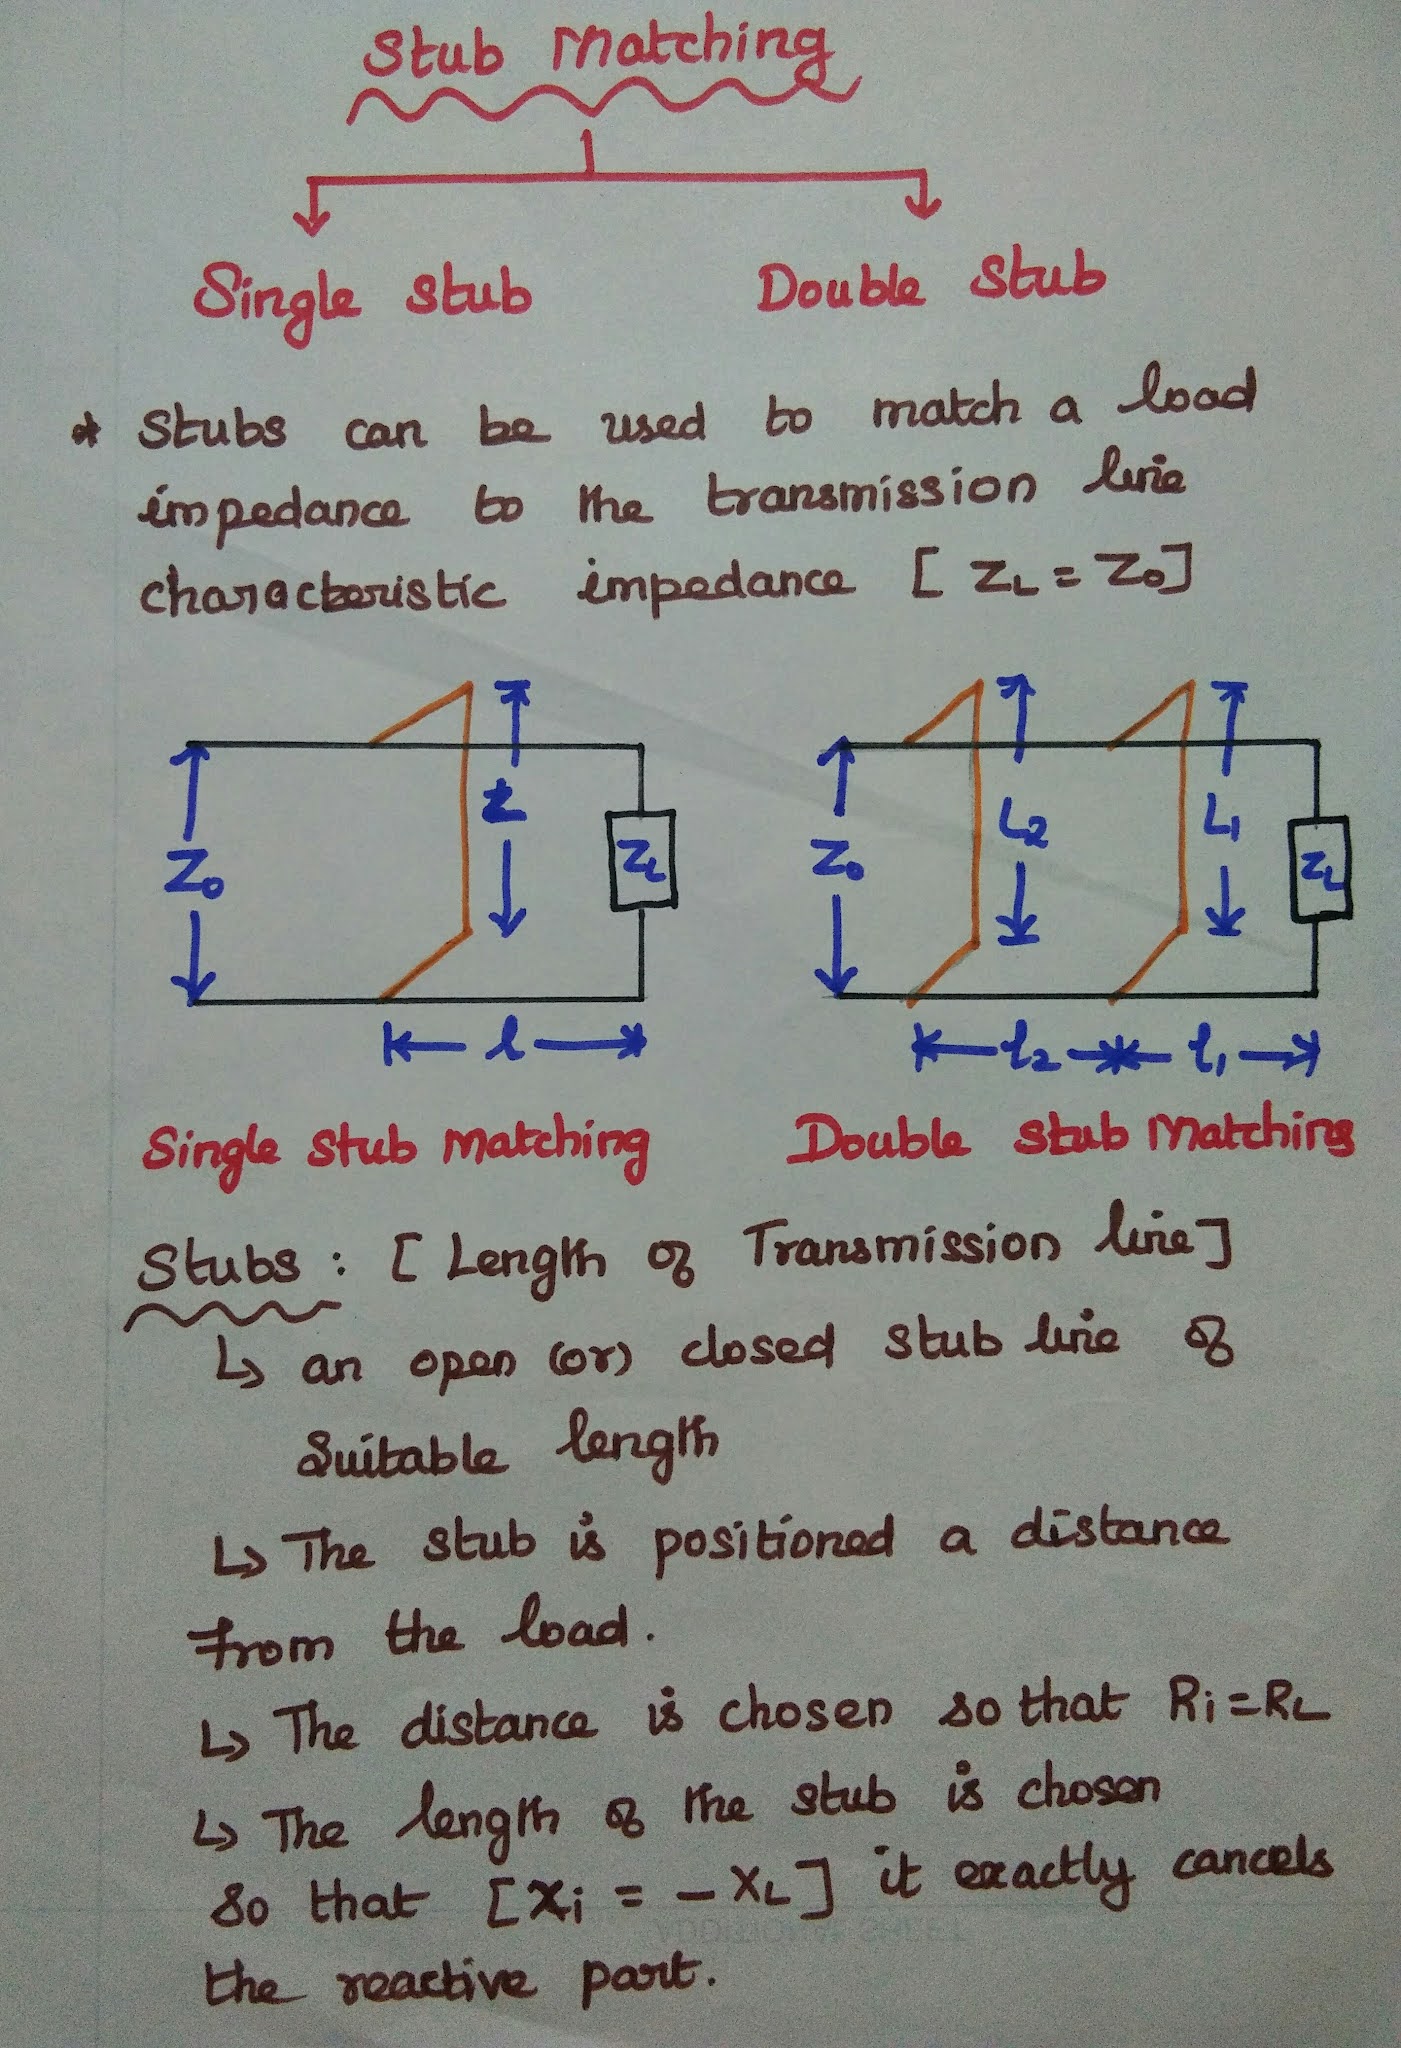 Stub Matching
Single stub
Double stub
* Stubs can be used to match a load
impedance to the transmission line
characteristic impedance [ ZL = Z0 ]
Z0
L
ZL
l
Z0
L2
L1
ZL
l2
l1
Single stub Matching
Double stub Matching
Stubs : [ Length of Transmission line ]
↳ an open (or) closed stub line of
Suitable length
↳ The stub is positioned a distance
from the load.
↳ The distance is chosen so that Ri = RL
↳ The length of the stub is chosen
so that [ Xi = - XL ] it exactly cancels
the reactive part.